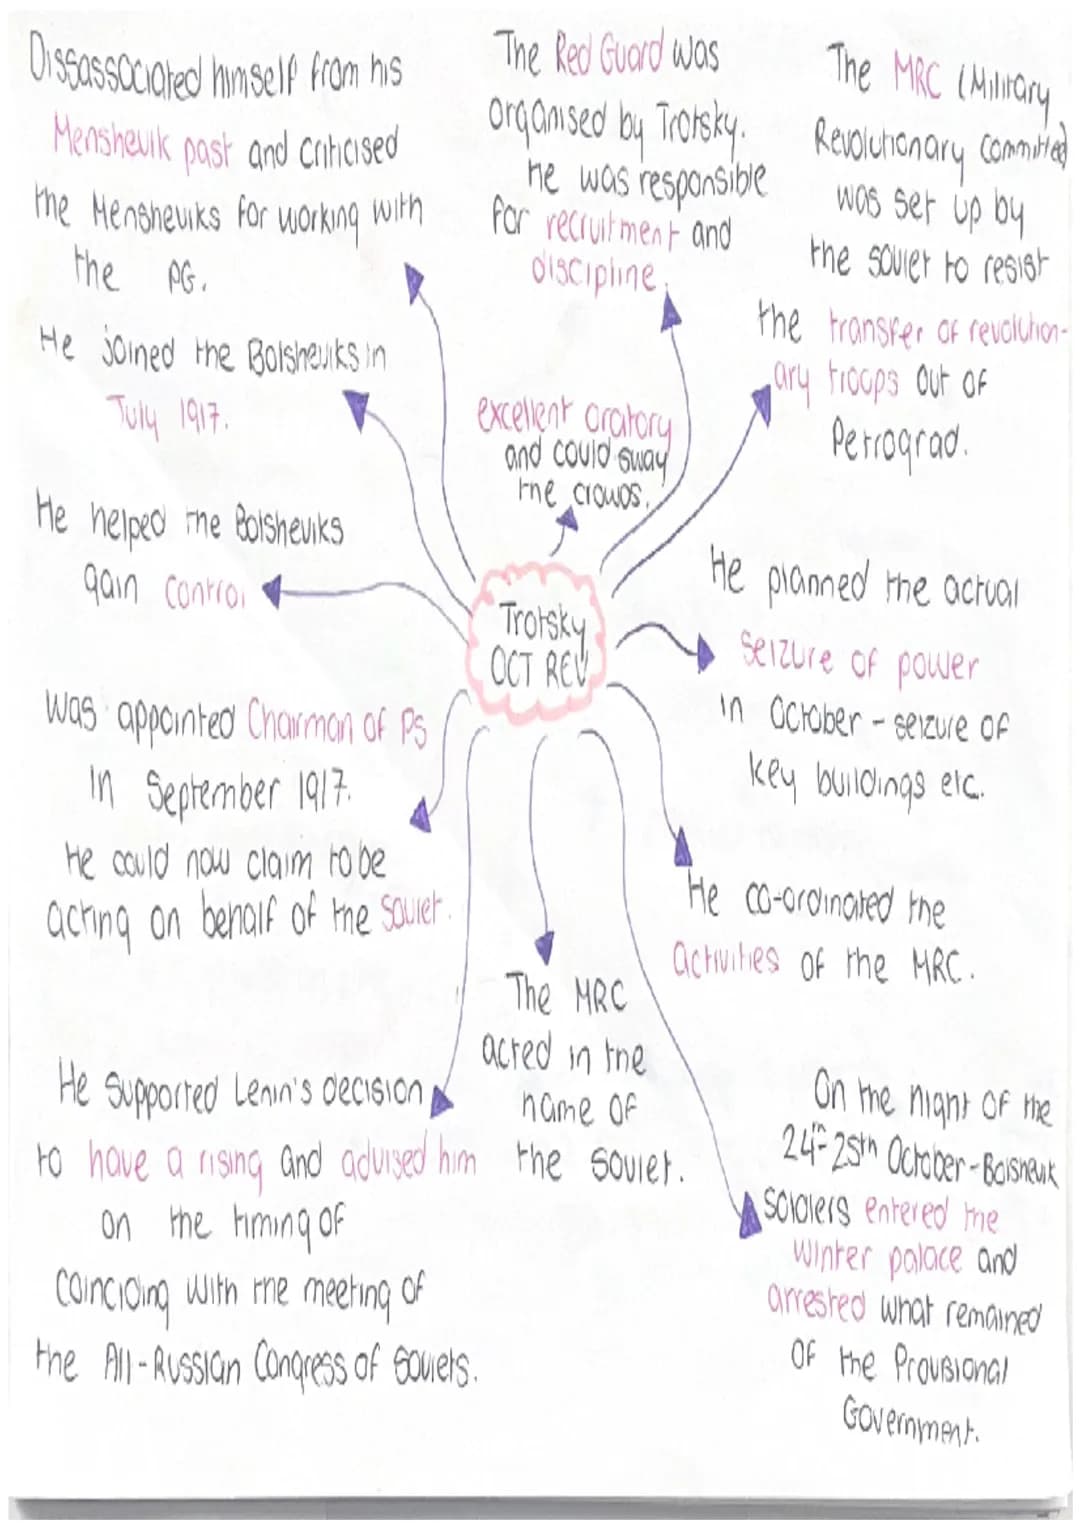 Dissassociated himself from his
Menshevik past and criticised
the Mensheviks for working with
the PG.
He joined the Bolsheviks in
July 1917.
He helped the Bolsheviks
gain control
Was appointed Chairman of PS
in September 1917.
He could now claim to be
acting on behalf of the Soviet.
He supported Lenin's decision
to have a rising and advised him
on the timing of
coinciding with the meeting of
the All-Russian Congress of Soviets.
The Red Guard was
organised by Trotsky.
he was responsible
for recruitment and
discipline.
excellent oratory
and could sway
the crowds.
Trotsky
OCT REV
The MRC
acted in the
name of
the Soviet.
The MRC (Military
Revolutionary Committee)
was set up by
the soviet to resist
the transfer of revolution-
ary troops out of
Petrograd.
He planned the actual
seizure of power
in October - seizure of
key buildings etc.
He co-ordinated the
activities of the MRC.
On the night of the
24th-25th October - Bolshevik
soldiers entered the
winter palace and
arrested what remained
of the Provisional
Government.